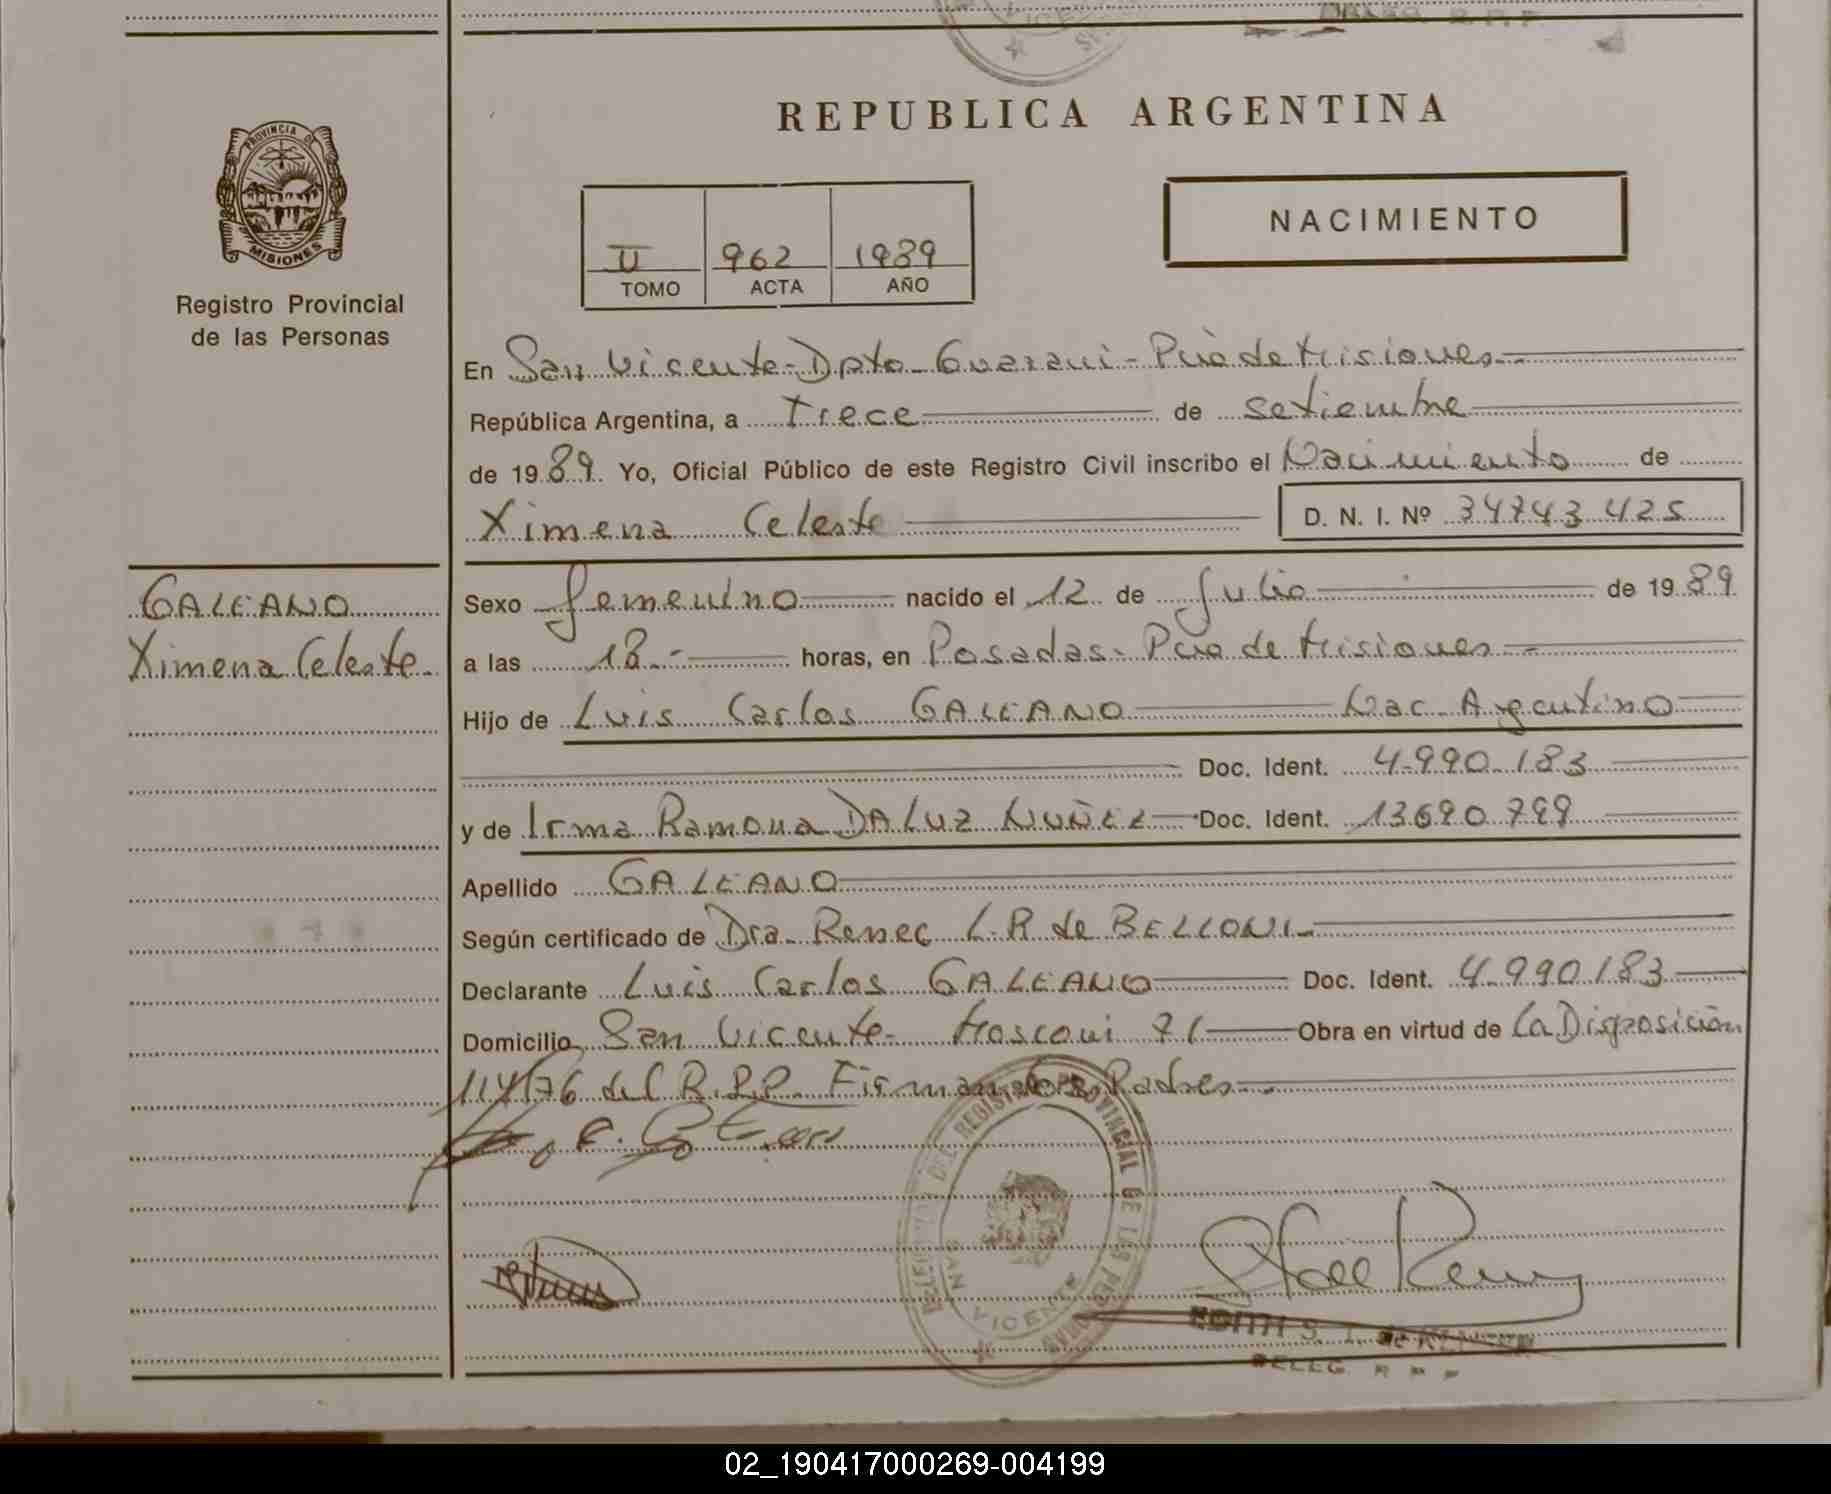 REPUBLICA ARGENTINA
PROVINCIA DE
MISIONES
Registro Provincial
de las Personas
NACIMIENTO
II 962 1989
TOMO ACTA AÑO
En San Vicente - Dpto Guarani - Pcia de Misiones
República Argentina, a Trece de setiembre
de 1989. Yo, Oficial Público de este Registro Civil inscribo el Nacimiento de
Ximena Celeste D. N. I. Nº 34743425
GALEANO
Ximena Celeste
Sexo femenino nacido el 12 de Julio de 1989
a las 18.- horas, en Posadas - Pcia de Misiones
Hijo de Luis Carlos GALEANO Nac. Argentino
Doc. Ident. 4.990.183
y de Irma Ramona DA LUZ NUÑEZ Doc. Ident. 13690799
Apellido GALEANO
Según certificado de Dra. Renee L.R de BELLONI
Declarante Luis Carlos GALEANO Doc. Ident. 4.990.183
Domicilio San Vicente - 71 Obra en virtud de La Disposición
114/76 del R.P.P. Firman los Padres
DEL REGISTRO PROVINCIAL DE LAS PERSONAS
SAN VICENTE
EDITH S.
DELEG. R P P
02_190417000269-004199